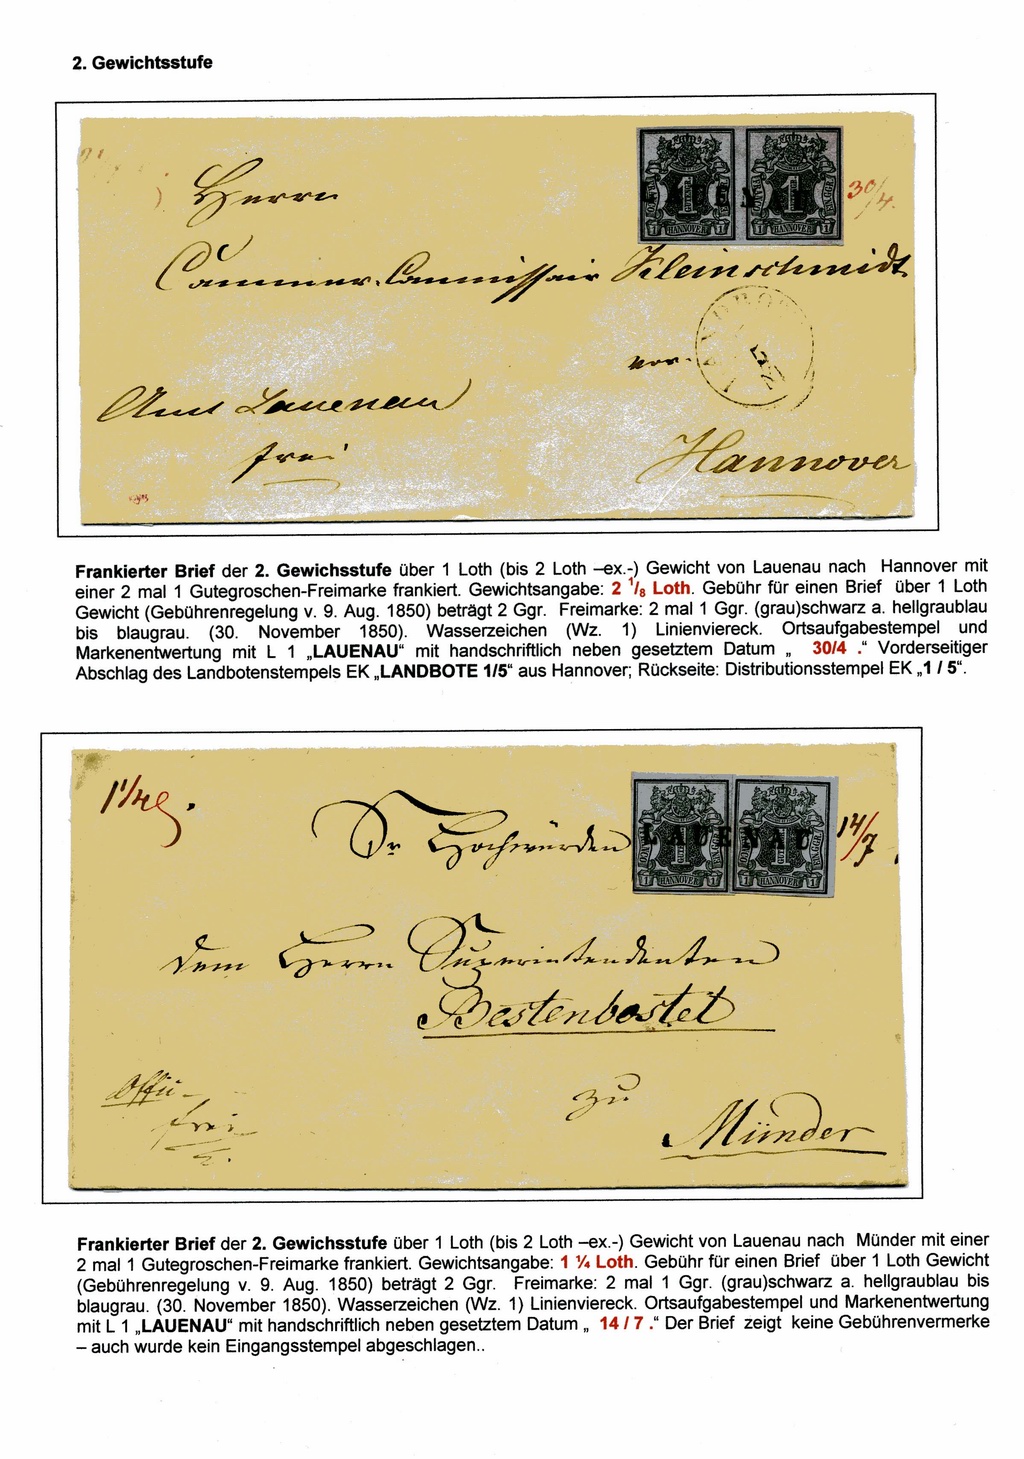 2. Gewichtsstufe
Herrn
LAUENAU
HANNOVER
30/4.
Cammer-Commissair Kleinschmidt
vor
Amt Lauenau
frei
Hannover
Frankierter Brief der 2. Gewichsstufe über 1 Loth (bis 2 Loth –ex.-) Gewicht von Lauenau nach Hannover mit
einer 2 mal 1 Gutegroschen-Freimarke frankiert. Gewichtsangabe: 2 1/8 Loth. Gebühr für einen Brief über 1 Loth
Gewicht (Gebührenregelung v. 9. Aug. 1850) beträgt 2 Ggr. Freimarke: 2 mal 1 Ggr. (grau)schwarz a. hellgraublau
bis blaugrau. (30. November 1850). Wasserzeichen (Wz. 1) Linienviereck. Ortsaufgabestempel und
Markenentwertung mit L 1 „LAUENAU“ mit handschriftlich neben gesetztem Datum „ 30/4 .“ Vorderseitiger
Abschlag des Landbotenstempels EK „LANDBOTE 1/5“ aus Hannover; Rückseite: Distributionsstempel EK „1 / 5“.
1 1/4
Sr Hochwürden
LAUENAU
HANNOVER
14/7
dem Herrn Superintendenten
Bestenbostel
zu
frei
Münder
Frankierter Brief der 2. Gewichsstufe über 1 Loth (bis 2 Loth –ex.-) Gewicht von Lauenau nach Münder mit einer
2 mal 1 Gutegroschen-Freimarke frankiert. Gewichtsangabe: 1 ¼ Loth. Gebühr für einen Brief über 1 Loth Gewicht
(Gebührenregelung v. 9. Aug. 1850) beträgt 2 Ggr. Freimarke: 2 mal 1 Ggr. (grau)schwarz a. hellgraublau bis
blaugrau. (30. November 1850). Wasserzeichen (Wz. 1) Linienviereck. Ortsaufgabestempel und Markenentwertung
mit L 1 „LAUENAU“ mit handschriftlich neben gesetztem Datum „ 14 / 7 .“ Der Brief zeigt keine Gebührenvermerke
– auch wurde kein Eingangsstempel abgeschlagen..